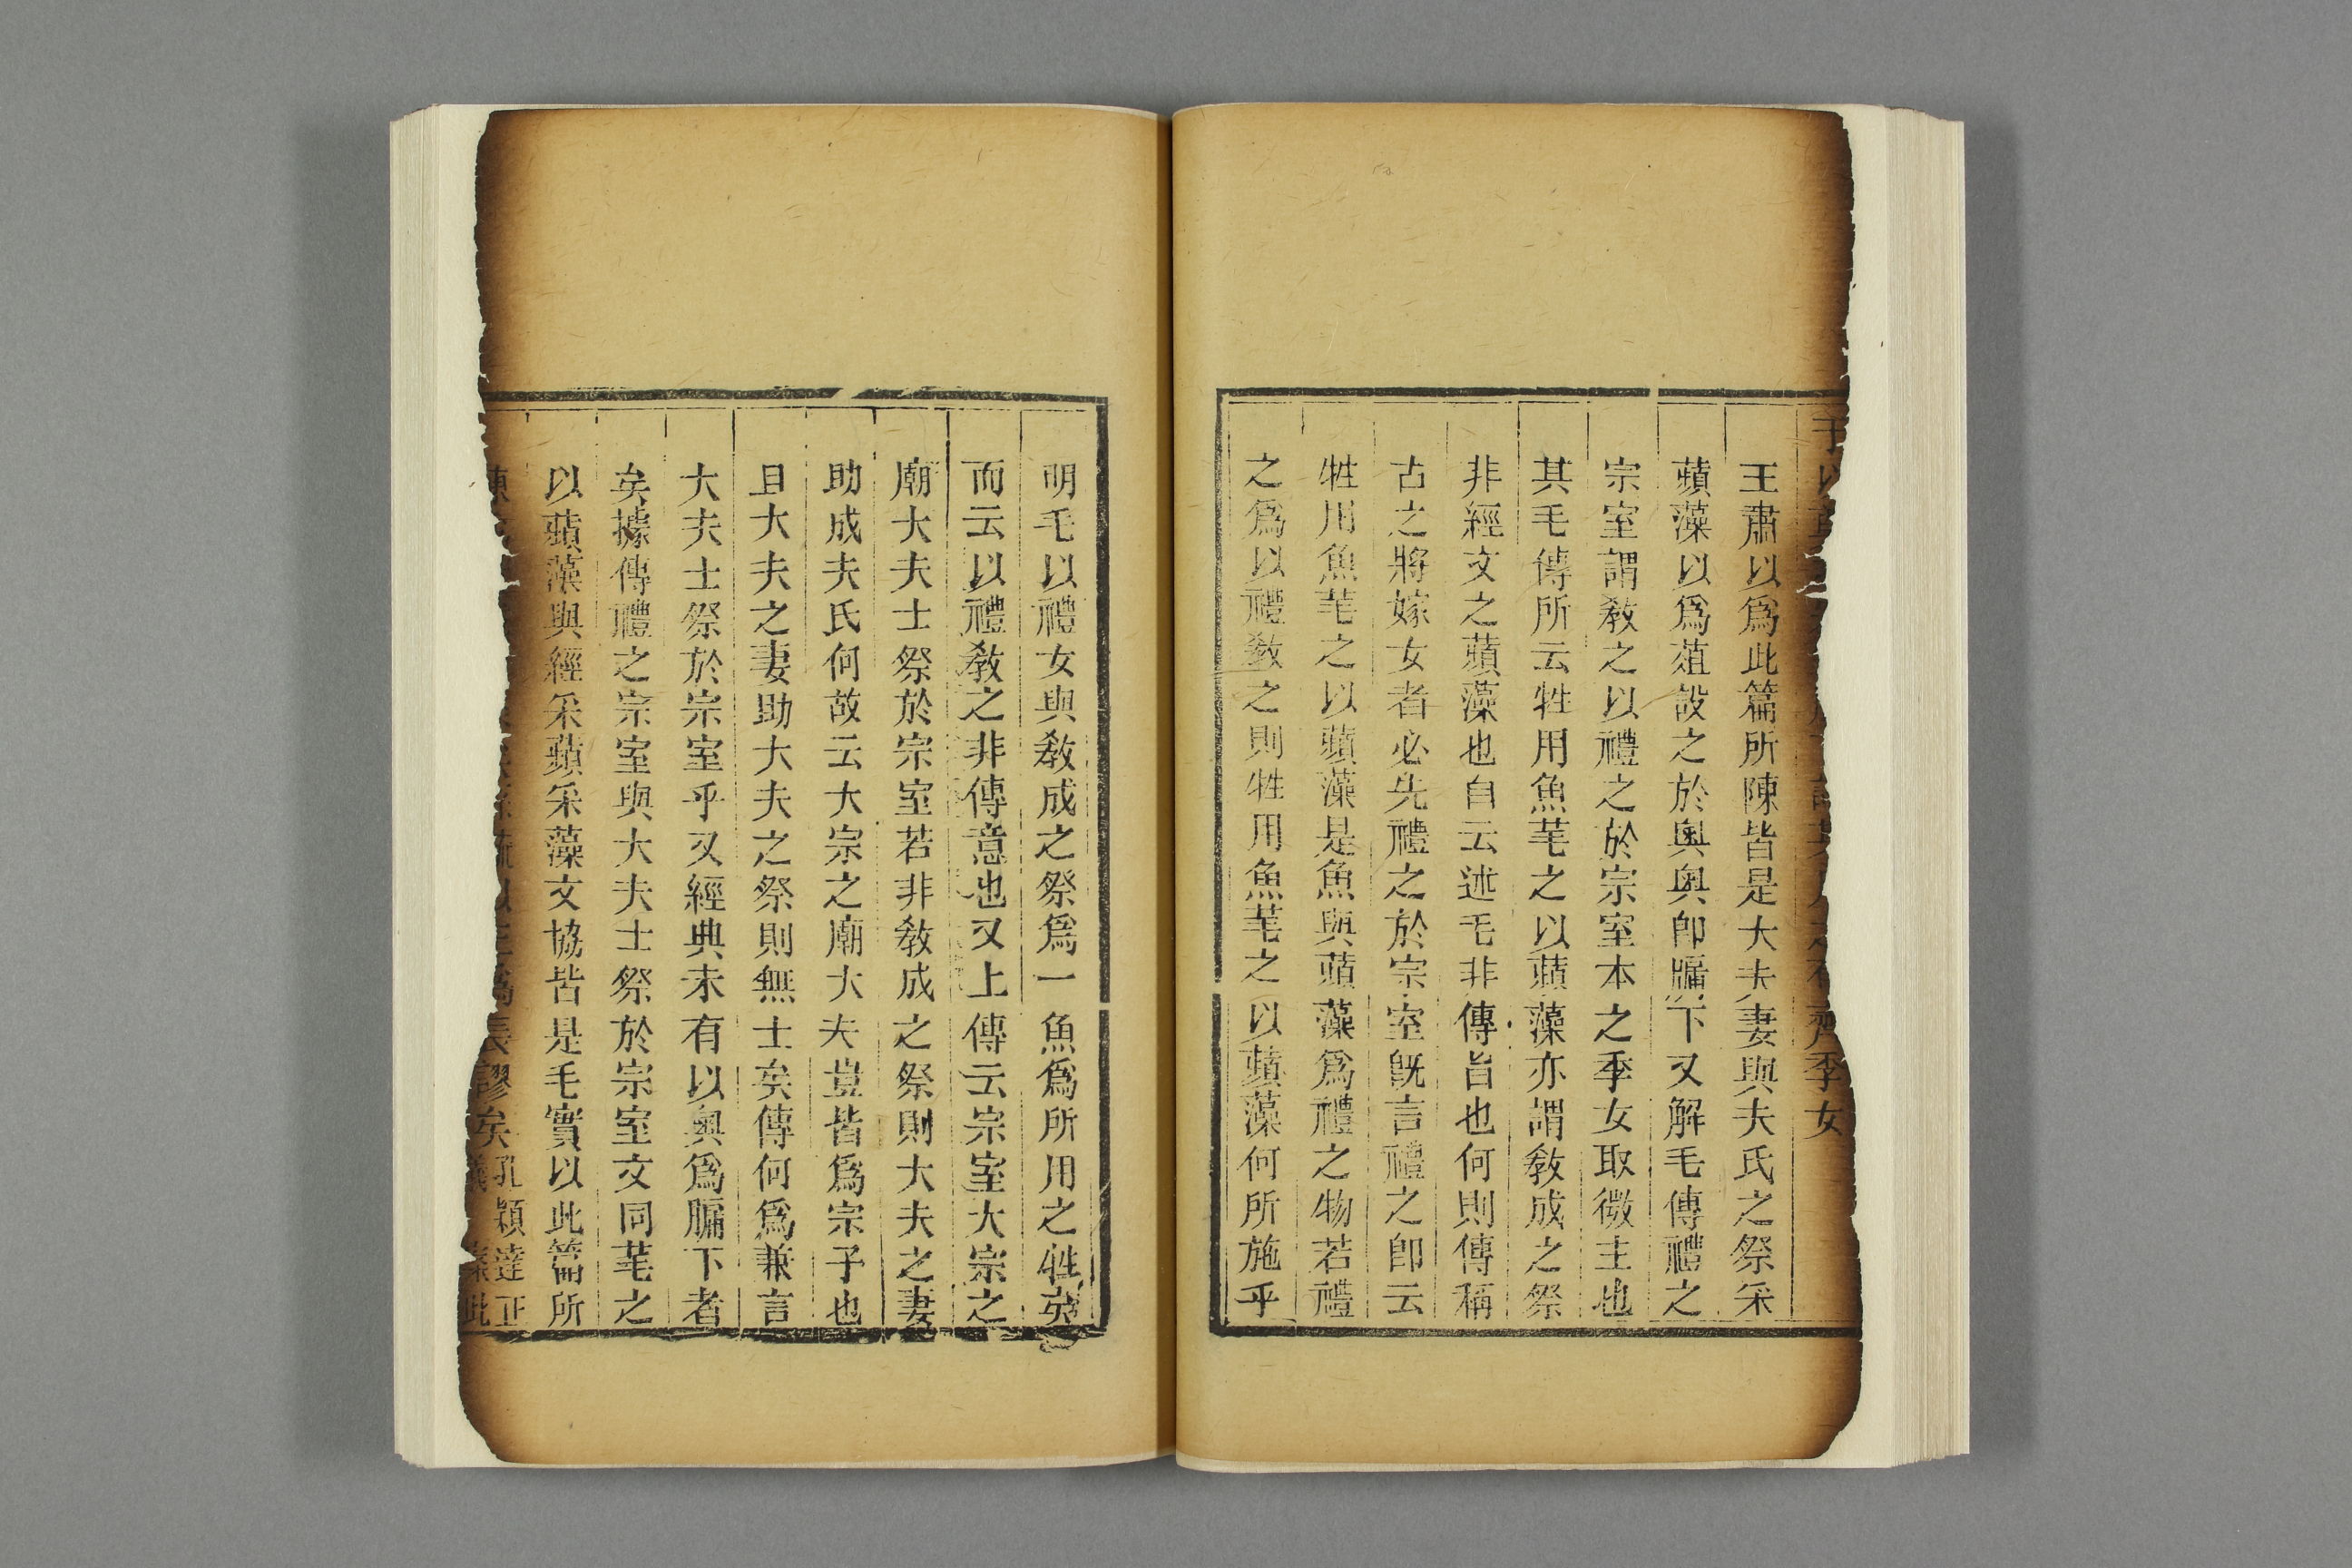 于以 季女
王肅以爲此篇所陳皆是大夫妻與夫氏之祭采
蘋藻以爲葅設之於奧奧卽牖下又解毛傳禮之
宗室謂敎之以禮之於宗室本之季女取微主也
其毛傳所云牲用魚芼之以蘋藻亦謂敎成之祭
非經文之蘋藻也自云述毛非傳旨也何則傳稱
古之將嫁女者必先禮之於宗室旣言禮之卽云
牲用魚芼之以蘋藻是魚與蘋藻爲禮之物若禮
之爲以禮敎之則牲用魚芼之以蘋藻何所施乎
明毛以禮女與敎成之祭爲一魚爲所用之牲矣
而云以禮敎之非傳意也又上傳云宗室大宗之
廟大夫士祭於宗室若非敎成之祭則大夫之妻
助成夫氏何故云大宗之廟大夫豈皆爲宗子也
且大夫之妻助大夫之祭則無士矣傳何爲兼言
大夫士祭於宗室乎又經典未有以奧爲牖下者
矣據傳禮之宗室與大夫士祭於宗室文同芼之
以蘋藻與經采蘋采藻文協皆是毛實以此篇所
陳 爲長謬矣孔穎達正 此